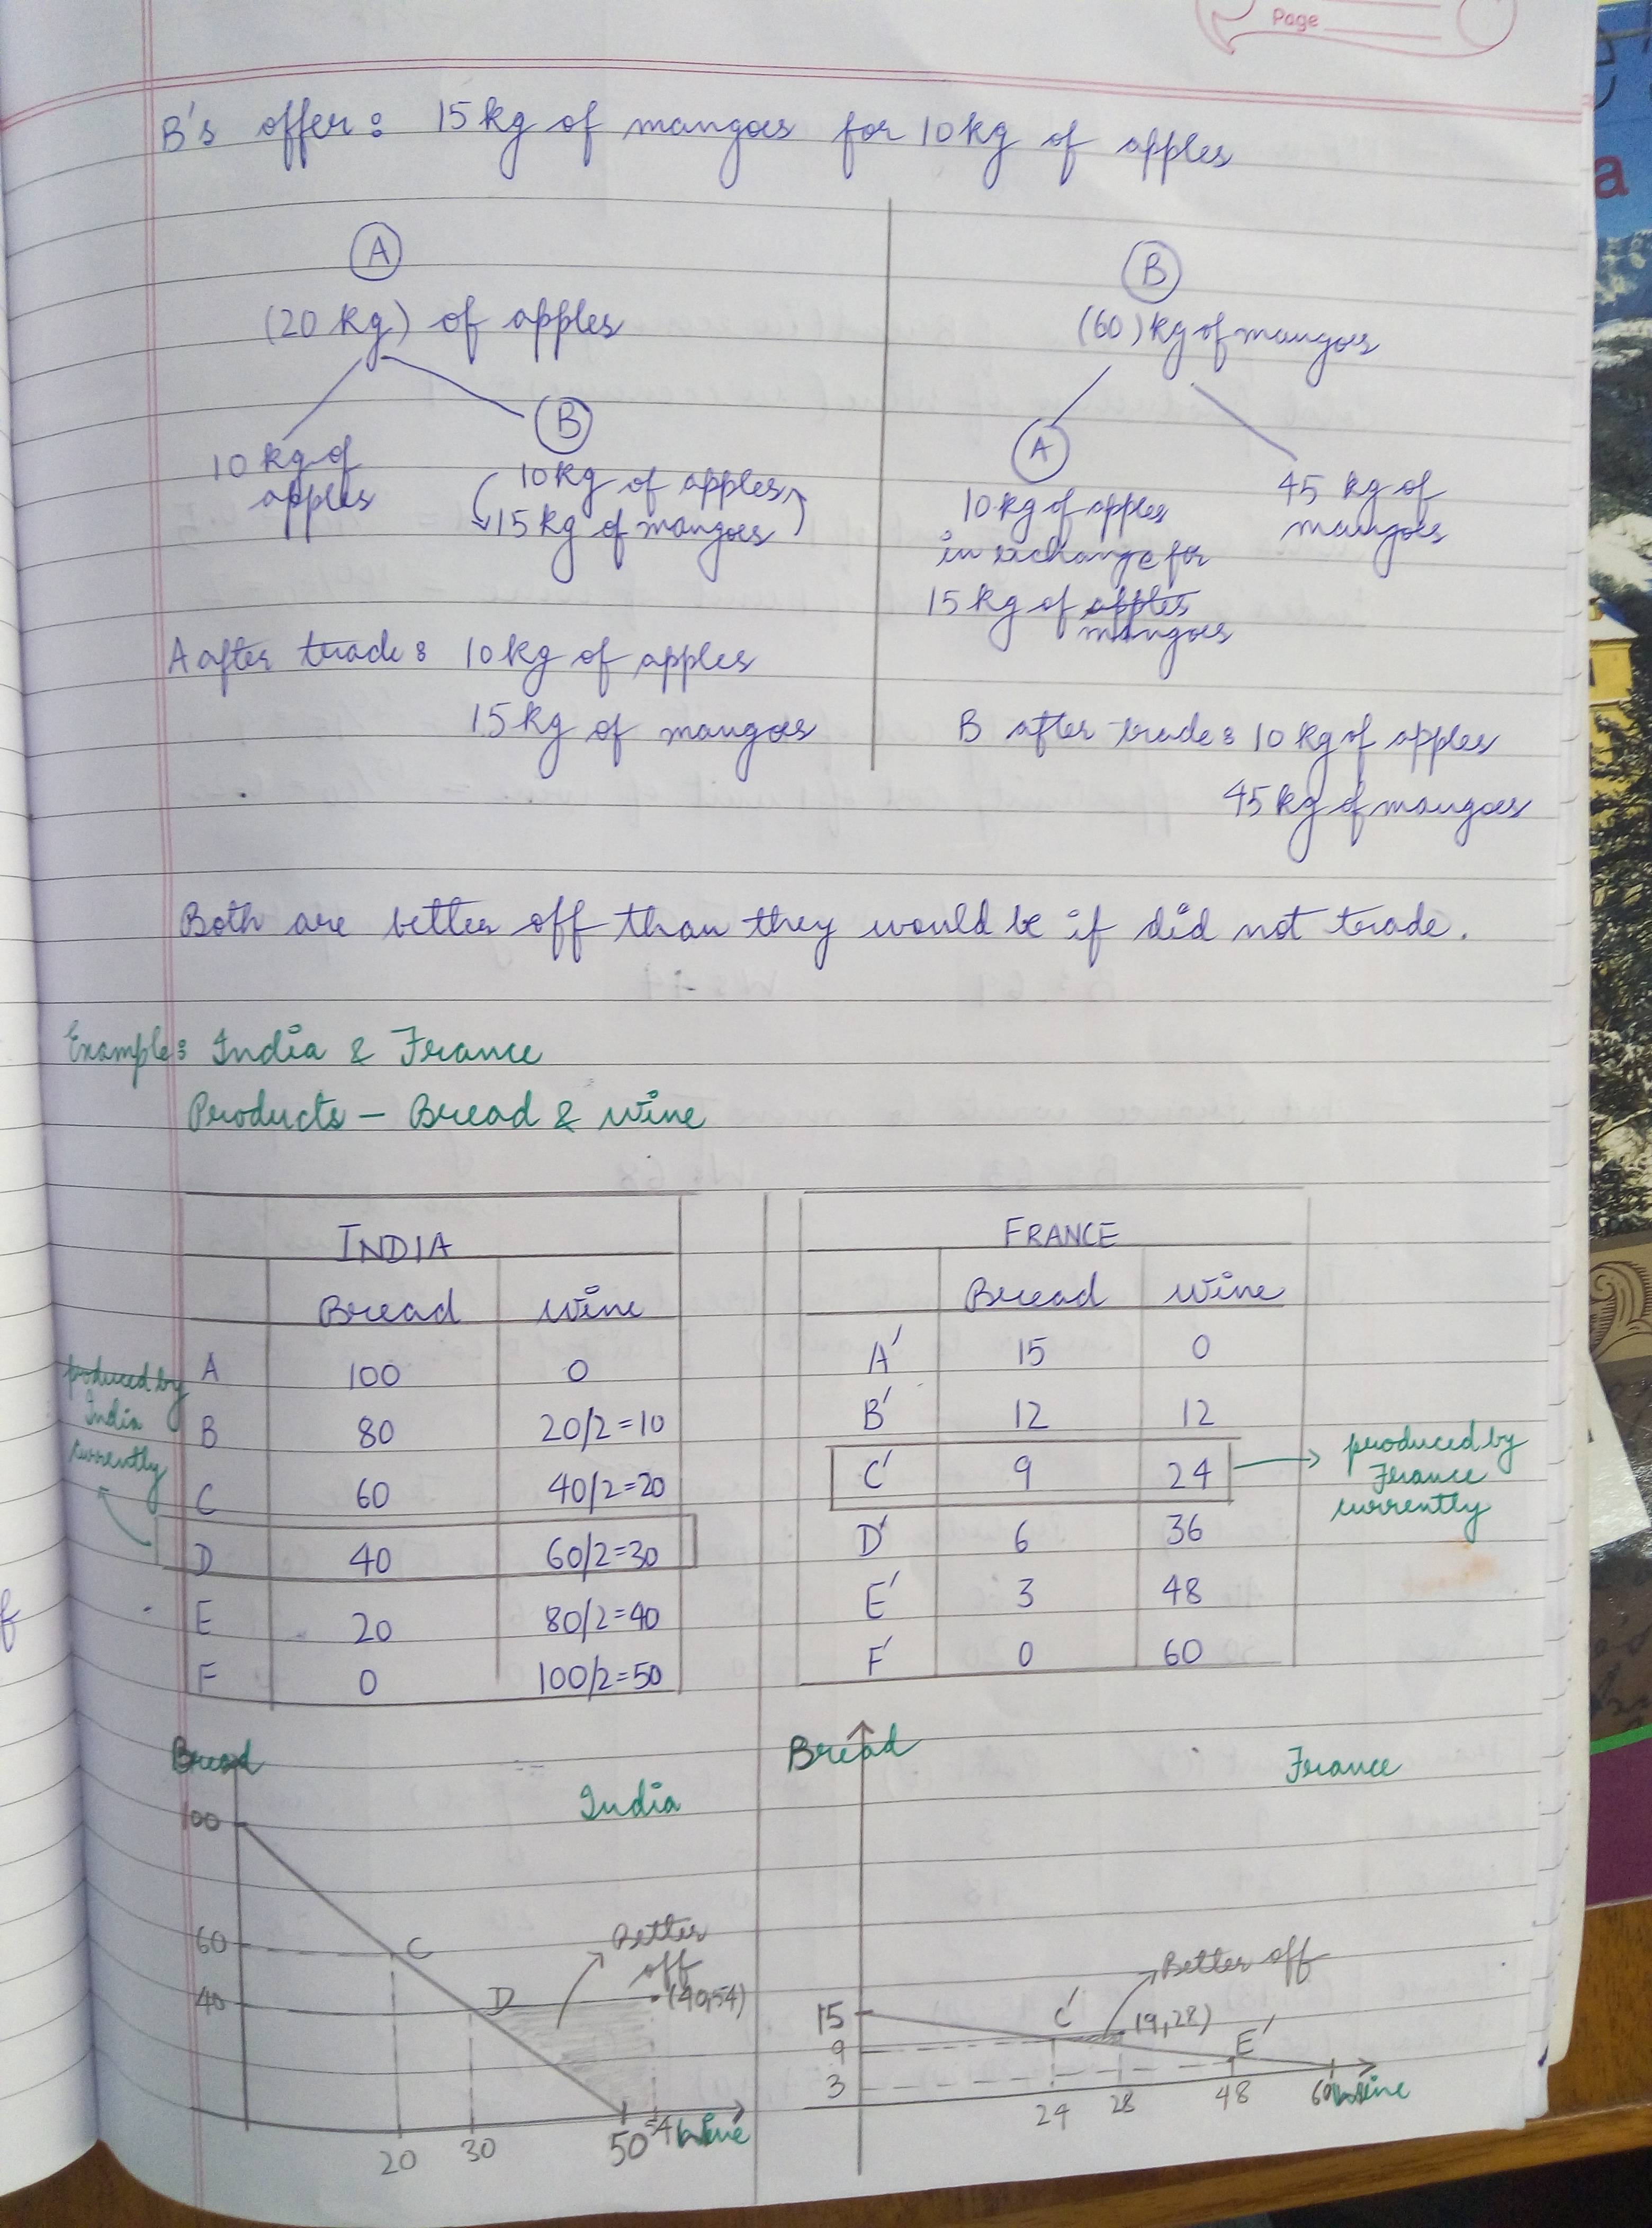 Page
B's offer: 15 kg of mangoes for 10 kg of apples
A
(20 kg) of apples
10 kg of
apples
B
10 kg of apples
15 kg of mangoes
A after trade: 10 kg of apples
15 kg of mangoes
B
(60) kg of mangoes
A
10 kg of apples
in exchange for
15 kg of apples
mangoes
45 kg of
mangoes
B after trade: 10 kg of apples
45 kg of mangoes
Both are better off than they would be if did not trade.
Example: India & France
Products – Bread & Wine
INDIA
Bread Wine
A 100 0
B 80 20/2=10
C 60 40/2=20
D 40 60/2=30
E 20 80/2=40
F 0 100/2=50
produced by
India
currently
FRANCE
Bread Wine
A' 15 0
B' 12 12
C' 9 24
D' 6 36
E' 3 48
F' 0 60
produced by
France
currently
Bread
India
100
60
40
C
D
Better
off
(40,54)
20 30 50 54 Wine
Bread
France
15
9
3
C'
Better off
(9,28)
E'
24 28 48 60 Wine
a